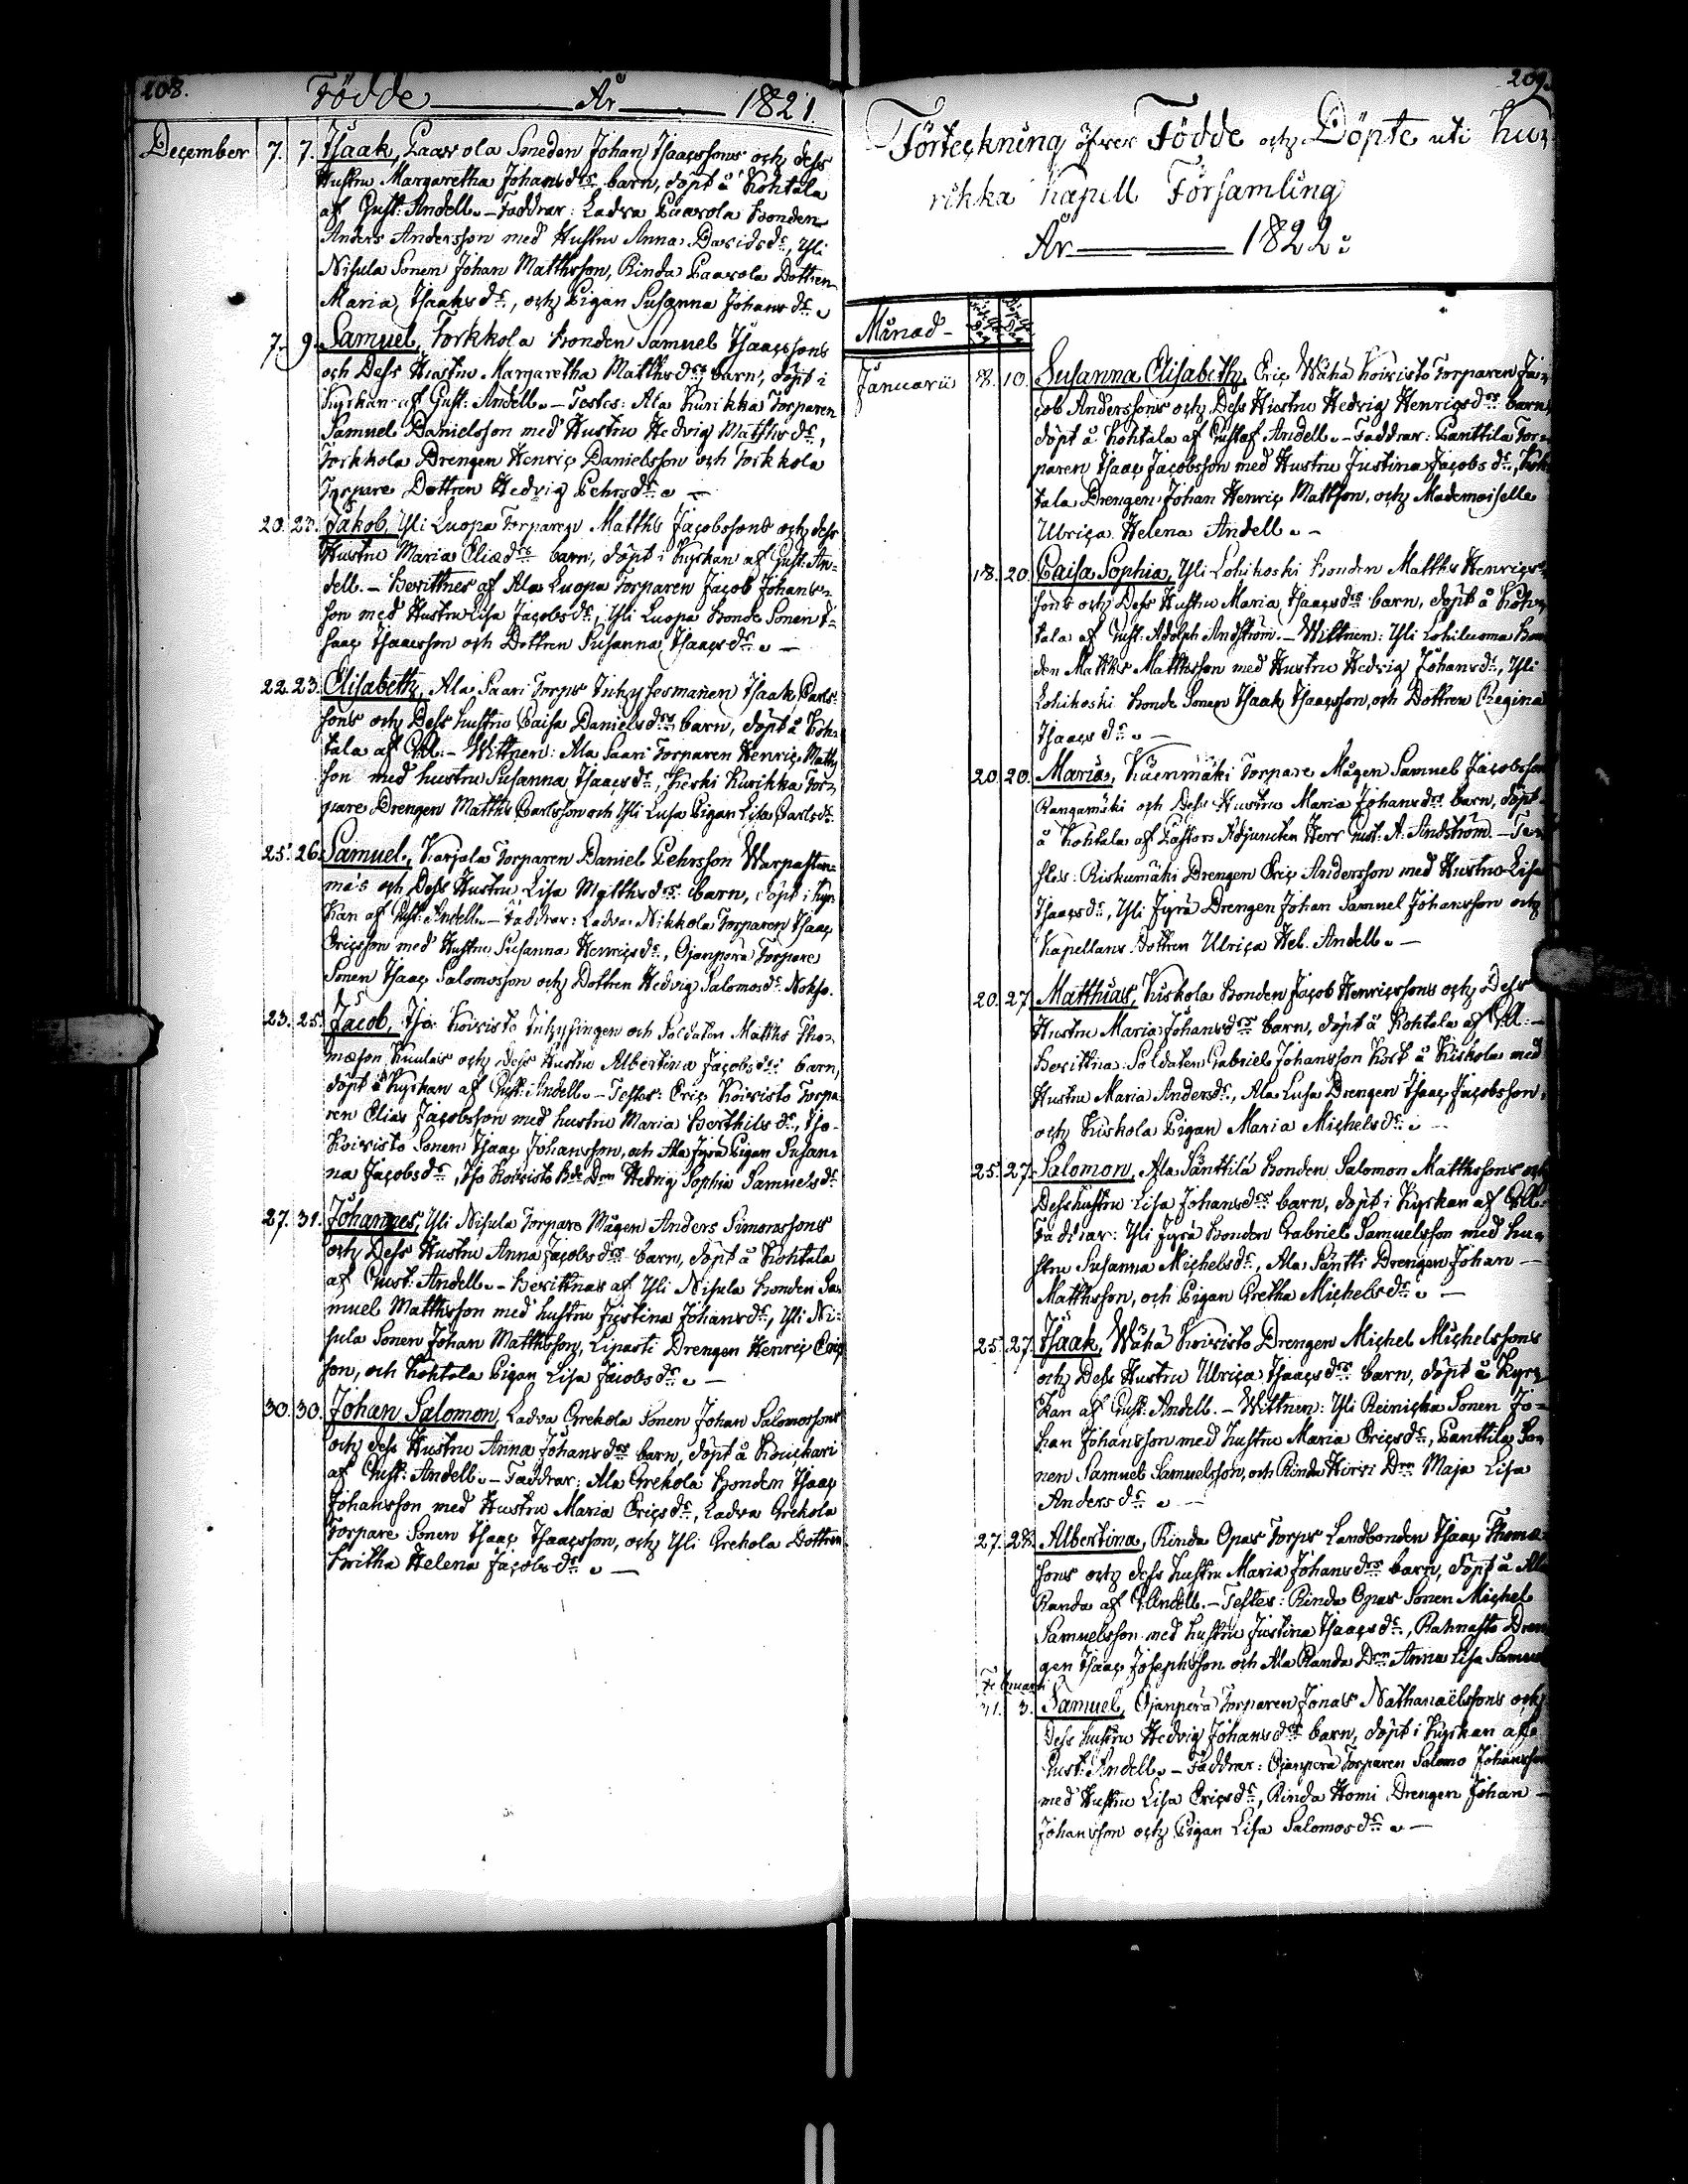 208.
Födde År 1821.
December 7. 7. Isaak, Paavola Smeden Johan Isaacssons och dess
Hustru Margaretha Johansdrs barn, döpt å Kohtala
af Gust: Andell. – Faddrar: Ladva Paavola Bonden
Anders Andersson med Hustru Anna Davidsdr, Yli
Nisula Sonen Johan Matthsson, Rinda Paavola Dottren
Maria Isaaksdr, och Pigan Susanna Johansdr. –
7. 9. Samuel, Torkkola Bonden Samuel Isaacssons
och Dess Hustru Margaretha Matthsdrs barn, döpt i
Kyrkan af Gust: Andell. – Testes: Ala Kurikka Torparen
Samuel Danielsson med Hustru Hedvig Matthsdr,
Torkkola Drengen Henric Danielsson och Torkkola
Torpare Dottren Hedvig Pehrsdr. –
20. 23. Jakob, Yli Luopa Torparen Matths Jacobssons och dess
Hustru Maria Eliædrs barn, döpt i Kyrkan af Gust: An-
dell. – Bevittnes af Ala Luopa Torparen Jacob Johans-
son med Hustru Lisa Jacobsdr, Yli Luopa Bonde Sonen I-
saac Isaacsson och Dottren Susanna Isaacsdr. –
22. 23. Elisabeth, Ala Saari Torps Inhysesmannen Isaak Carls-
sons och Dess hustru Caisa Danielsdrs barn, döpt å Koh-
tala af GA. – Wittnen: Ala Saari Torparen Henric Matths
son med hustru Susanna Isaacsdr, Keski Kurikka Tor-
pare Drengen Matths Carlsson och Yli Lusa Pigan Lisa Carlsdr.
25. 26. Samuel, Karjola Torparen Daniel Pehrsson Warpasten-
mä's och Dess Hustru Lisa Matthsdrs barn, döpt i Kyr
kan af Gust: Andell. – Faddrar: Ladva Nikkola Torparen Isaac
Ericsson med Hustru Susanna Henricsdr, Ojanperä Torpare
Sonen Isaac Salomosson och Dottren Hedvig Salomosdr Nokso.
23. 25. Jacob, Iso Koivisto Inhysingen och Soldaten Matths Tho-
mæson Knulas och dess Hustru Albertina Jacobsdrs barn,
döpt å Kyrkan af Gust: Andell. – Testes: Eric Koivisto Torpa
ren Elias Jacobsson med hustru Maria Berthilsdr, Iso
Koivisto Sonen Isaac Johansson, och Ala Jyrä Pigan Susan-
na Jacobsdr, Iso Koivisto Bde Drn Hedvig Sophia Samuelsdr
27. 31. Johannes, Yli Nisula Torpare Mågen Anders Simonssons
och Dess Hustru Anna Jacobsdrs barn, döpt å Kohtala
af Gust: Andell. – Bevittnas af Yli Nisula Bonden Sa-
muel Matthsson med hustru Justina Johansdr, Yli Ni-
sula Sonen Johan Matthsson, Liparti Drengen Henric Erics
son, och Kohtala Pigan Lisa Jacobsdr. –
30. 30. Johan Salomon, Ladva Grekola Sonen Johan Salomossons
och dess Hustru Anna Johansdrs barn, döpt å Kouckari
af Gust: Andell. – Faddrar: Ala Grekola Bonden Isaac
Johansson med Hustru Maria Ericsdr, Ladva Grekola
Torpare Sonen Isaac Isaacsson, och Yli Grekola Dottren
Britha Helena Jacobsdr. –
209.
Förteckning öfver Födde och Döpte uti Ku-
rikka Kapell Församling
År 1822:
Månad
Januarii 8. 10. Susanna Elisabeth, Eric Wähä Koivisto Torparen Ja-
cob Anderssons och Dess Hustru Hedvig Henricsdrs barn,
döpt å Kohtala af Gustaf Andell. – Faddrar: Panttila Tor-
paren Isaac Jacobsson med Hustru Justina Jacobsdr, Koh
tala Drengen Johan Henric Mattson, och Mademoiselle
Ulrica Helena Andell. –
18. 20. Caisa Sophia, Yli Lohikoski Bonden Matths Henrics-
sons och Dess Hustru Maria Isaacsdrs barn, döpt å Koh-
tala af Gust: Adolph Andström. – Wittnen: Yli Lohiluoma Bon
den Matths Matthsson med Hustru Hedvig Johansdr, Yli
Lohikoski Bonde Sonen Isaak Isaacsson, och Dottren Regina
Isaacsdr. –
20. 20. Maria, Kuenmäki Torpare Mågen Samuel Jacobsson
Rangamäki och Dess Hustru Maria Johansdrs barn, döpt
å Kohtala af Pastors Adjuncten Herr Gust: A: Andström. – Te-
stes: Riskumäki Drengen Eric Andersson med Hustru Lisa
Isaacsdr, Yli Jyrä Drengen Johan Samuel Johansson och
Kapellans Dottren Ulrica Hel. Andell. –
20. 27. Matthias, Kiskola Bonden Jacob Henricssons och Dess
Hustru Maria Johansdrs barn, döpt å Kohtala af GA. –
Bevittna: Soldaten Gabriel Johansson Kort å Kiskola med
Hustru Maria Andersdr, Ala Lusa Drengen Isaac Jacobsson,
och Kiskola Pigan Maria Michelsdr. –
25. 27. Salomon, Ala Sänttilä Bonden Salomon Matthssons och
Dess hustru Lisa Johansdrs barn, döpt i Kyrkan af GA.
Faddrar: Yli Jyrä Bonden Gabriel Samuelsson med hu-
stru Susanna Michelsdr, Ala Säntti Drengen Johan –
Matthsson, och Pigan Gretha Michelsdr. –
25. 27. Isaak, Wähä Koivisto Drengen Michel Michelssons
och Dess Hustru Ulrica Isaacsdrs barn, döpt å Kyr-
kan af Gust: Andell. – Wittnen: Yli Reinicka Sonen Jo-
han Johansson med hustru Maria Ericsdr, Panttila So-
nen Samuel Samuelsson, och Rinda Hirvi Drn Maja Lisa
Andersdr. –
27. 28. Albertina, Rinda Opas Torps Landbonden Isaac Thomæ-
sons och dess hustru Maria Johansdrs barn, döpt å Ala
Randa af G. Andell. – Testes: Rinda Opas Sonen Michel
Samuelsson med hustru Justina Isaacsdr, Rahnasto Dren
gen Isaac Josephsson och Ala Randa Drn Anna Lisa Samuels
Februarii
31. 3. Samuel, Ojanperä Torparen Jonas Nathanaëlssons och
Dess hustru Hedvig Johansdrs barn, döpt i Kyrkan af
Gust: Andell. – Faddrar: Ojanperä Torparen Salomo Johansson
med Hustru Lisa Ericsdr, Rinda Homi Drengen Johan –
Johansson och Pigan Lisa Salomosdr. –